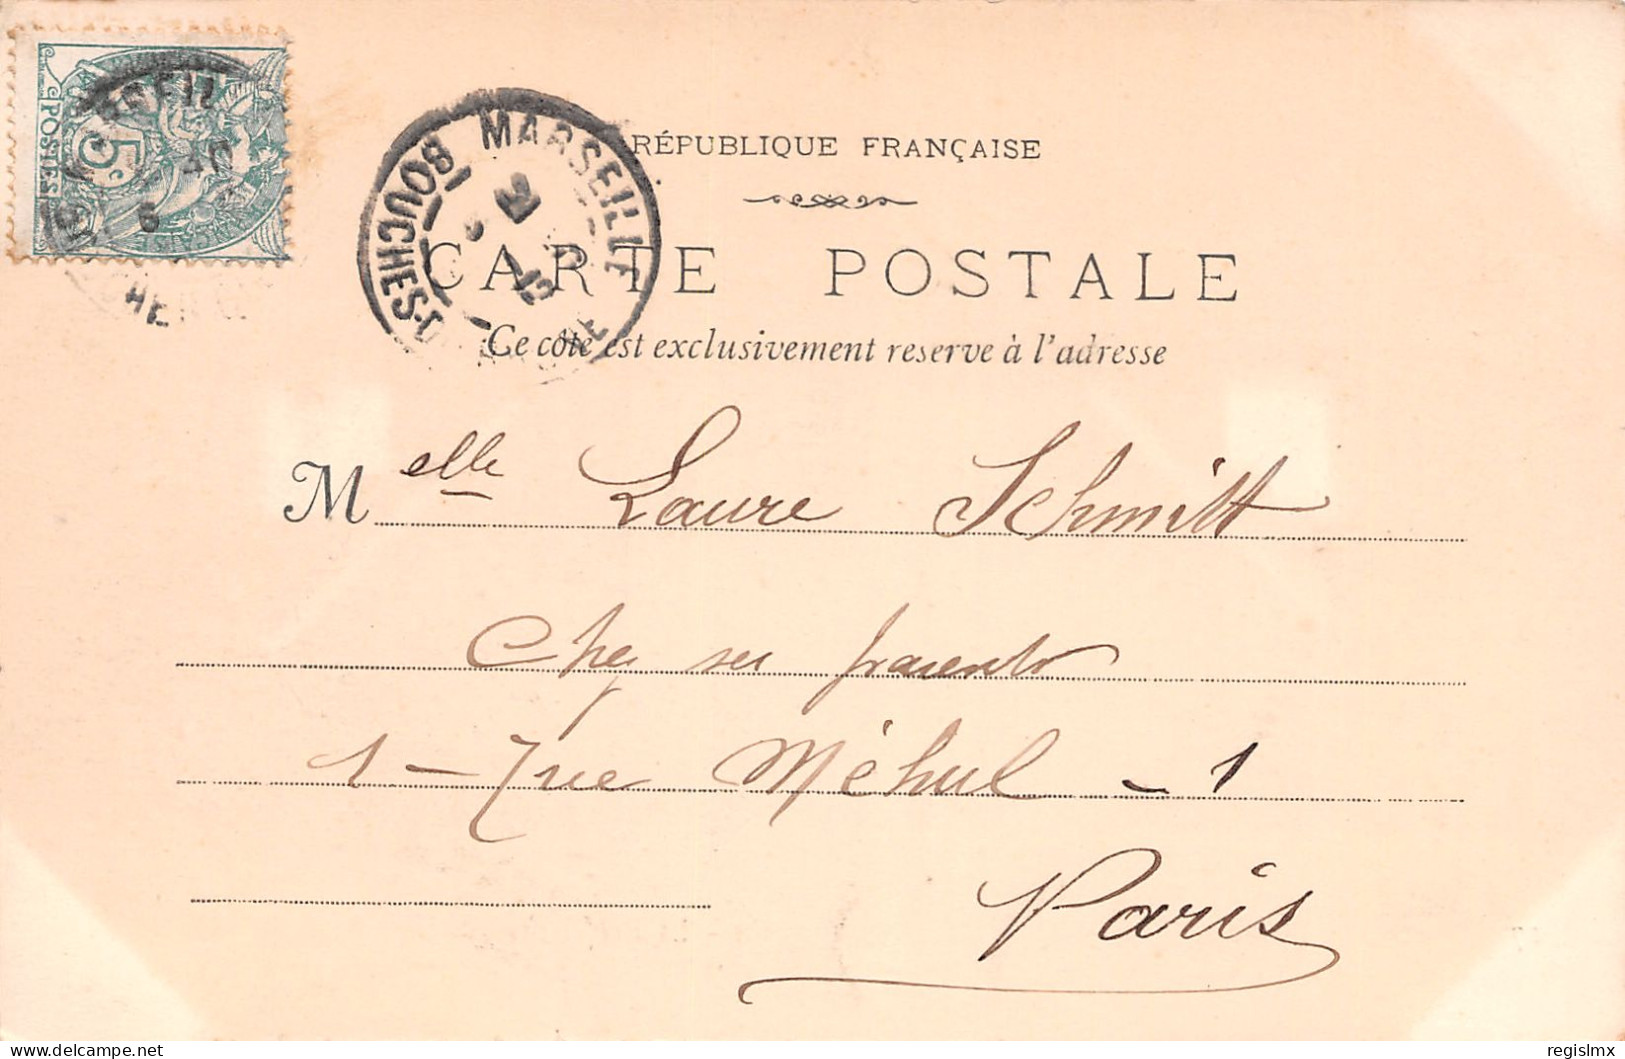 5c
POSTES
MARSEILLE
BOUCHES-D
RÉPUBLIQUE FRANÇAISE
CARTE POSTALE
Ce côté est exclusivement reserve à l'adresse
Melle Laure Schmitt
Chez ses parents
1 - rue Méhul - 1
Paris
delcampe.net
regislmx